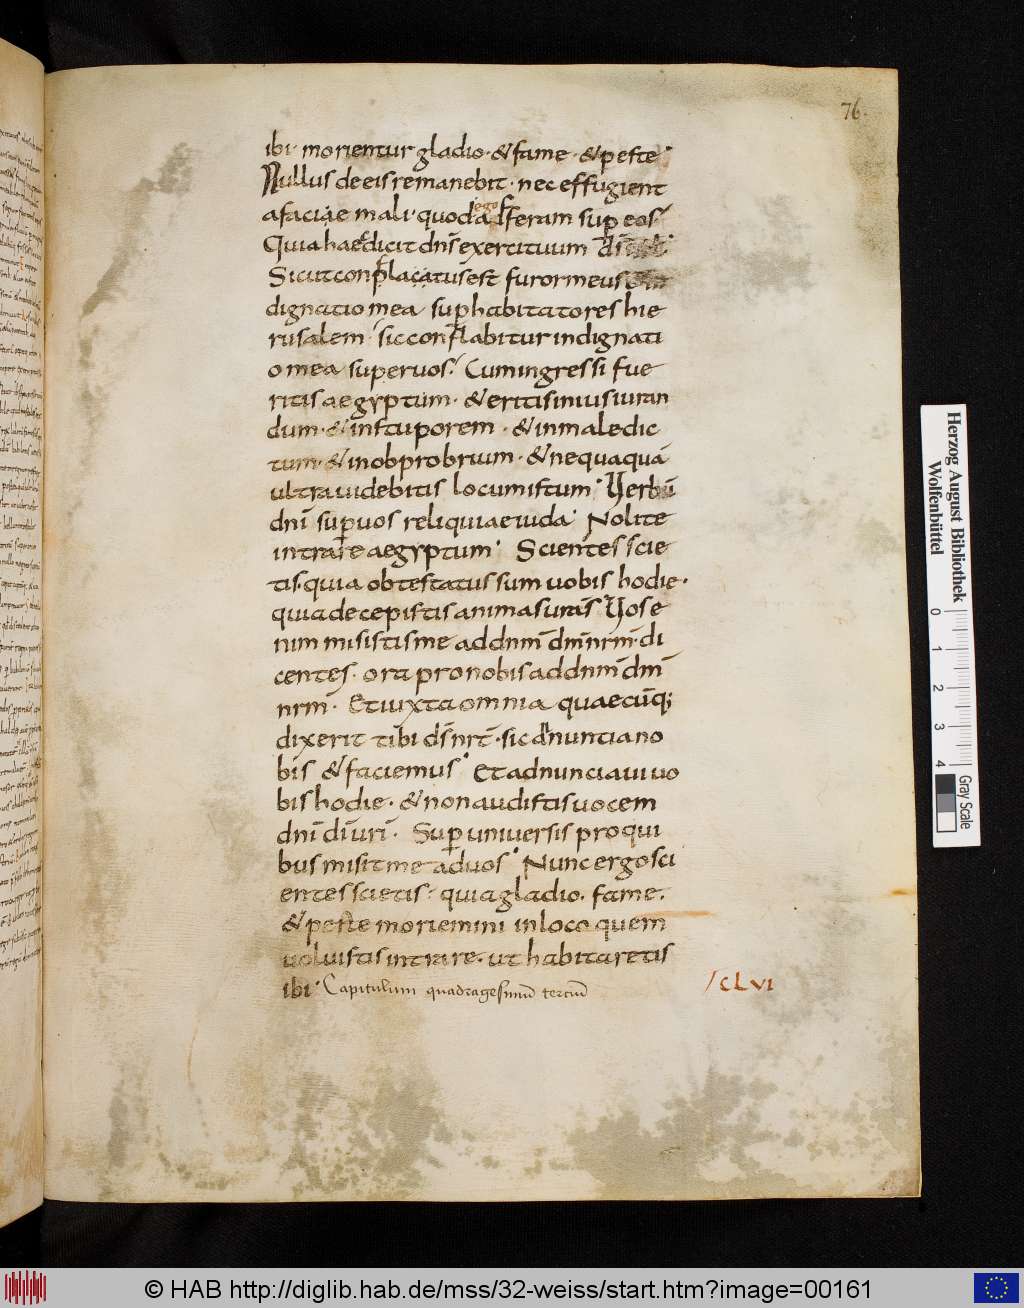 76.
ibi· morientur gladio·&fame·&peste·
Nullus deeis remanebit· nec effugient
afaciae mali· quod ego adferam sup eos·
Quia haec dicit dnī exertituum
Sicut conflacatus est furor meus
dignatio mea sup habitatores hie
rusalem· sic conflabitur indignati
o mea super uos· Cum ingressi fue
ritis aegyptum· & eritis iniusiuran
dum· & instuporem· & inmaledic
tum· & inobprobrium· & nequaquā
ultra uidebitis locum istum· Uerbū
dnī sup uos reliquiae iuda· Nolite
intrare aegyptum· Scientes scie
tis· quia obtestatus sum uobis hodie·
quia decepistis animas uras̄ Uos e
nim misistis me addnm̄ dm̄ nrm̄· di
centes· ora pro nobis addnm̄ dm̄
nrm̄· Et iuxta omnia quaecūq;
dixerit tibi ds̄ nr̄· sic adnuntia no
bis & faciemus· Et adnunciaui uo
bis hodie· & non audistis uocem
dnī dī urī· Sup uniuersis pro qui
bus misit me ad uos· Nunc ergo sci
entes scietis· quia gladio· fame·
& peste moriemini inloco quem
uoluistis intrare· ut habitaretis
ibi· Capitulum quadragesimū terciū
CLVI
Herzog August Bibliothek
Wolfenbüttel
0 1 2 3 4
Gray Scale
© HAB http://diglib.hab.de/mss/32-weiss/start.htm?image=00161